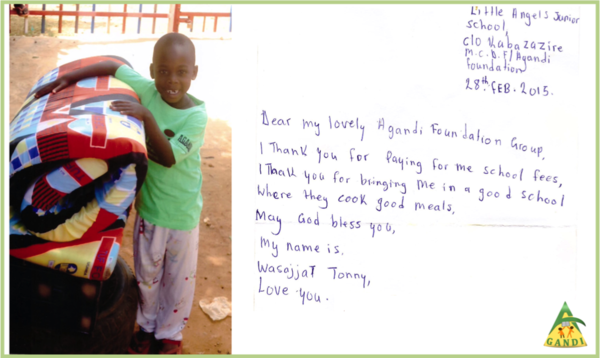 Little Angels Junior
school,
c/o Kabazazire
M.C.D.F/Agandi
foundation
28th FEB. 2015.
Dear my lovely Agandi Foundation Group,
I Thank you for Paying for me school fees,
I Thank you for bringing me in a good school
Where they cook good meals,
May God bless you,
My name is.
Wasajjat Tonny,
Love you.
GANDI